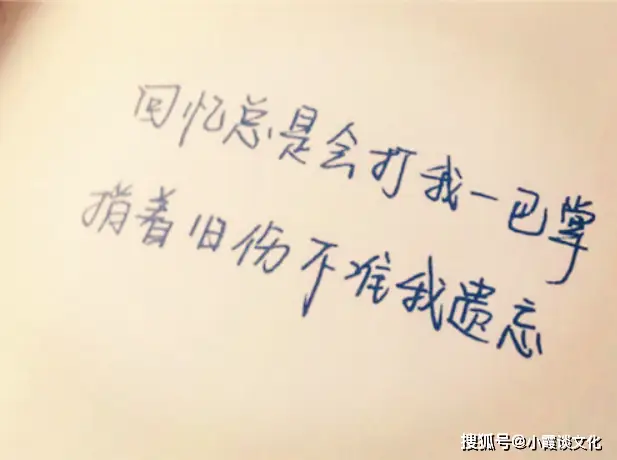 回忆总是会打我一巴掌
揹着旧伤不准我遗忘
搜狐号@小霞谈文化